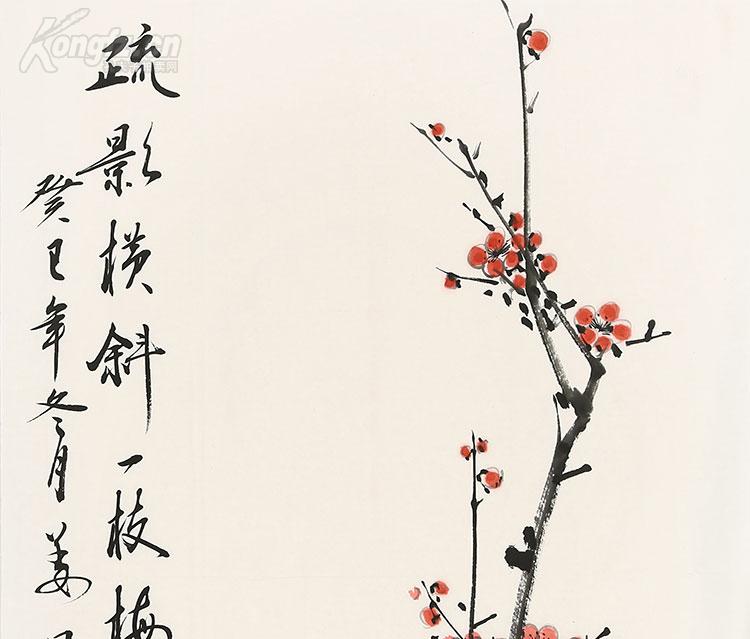 疏影横斜一枝梅
癸巳年冬月姜
Kongfz.cn